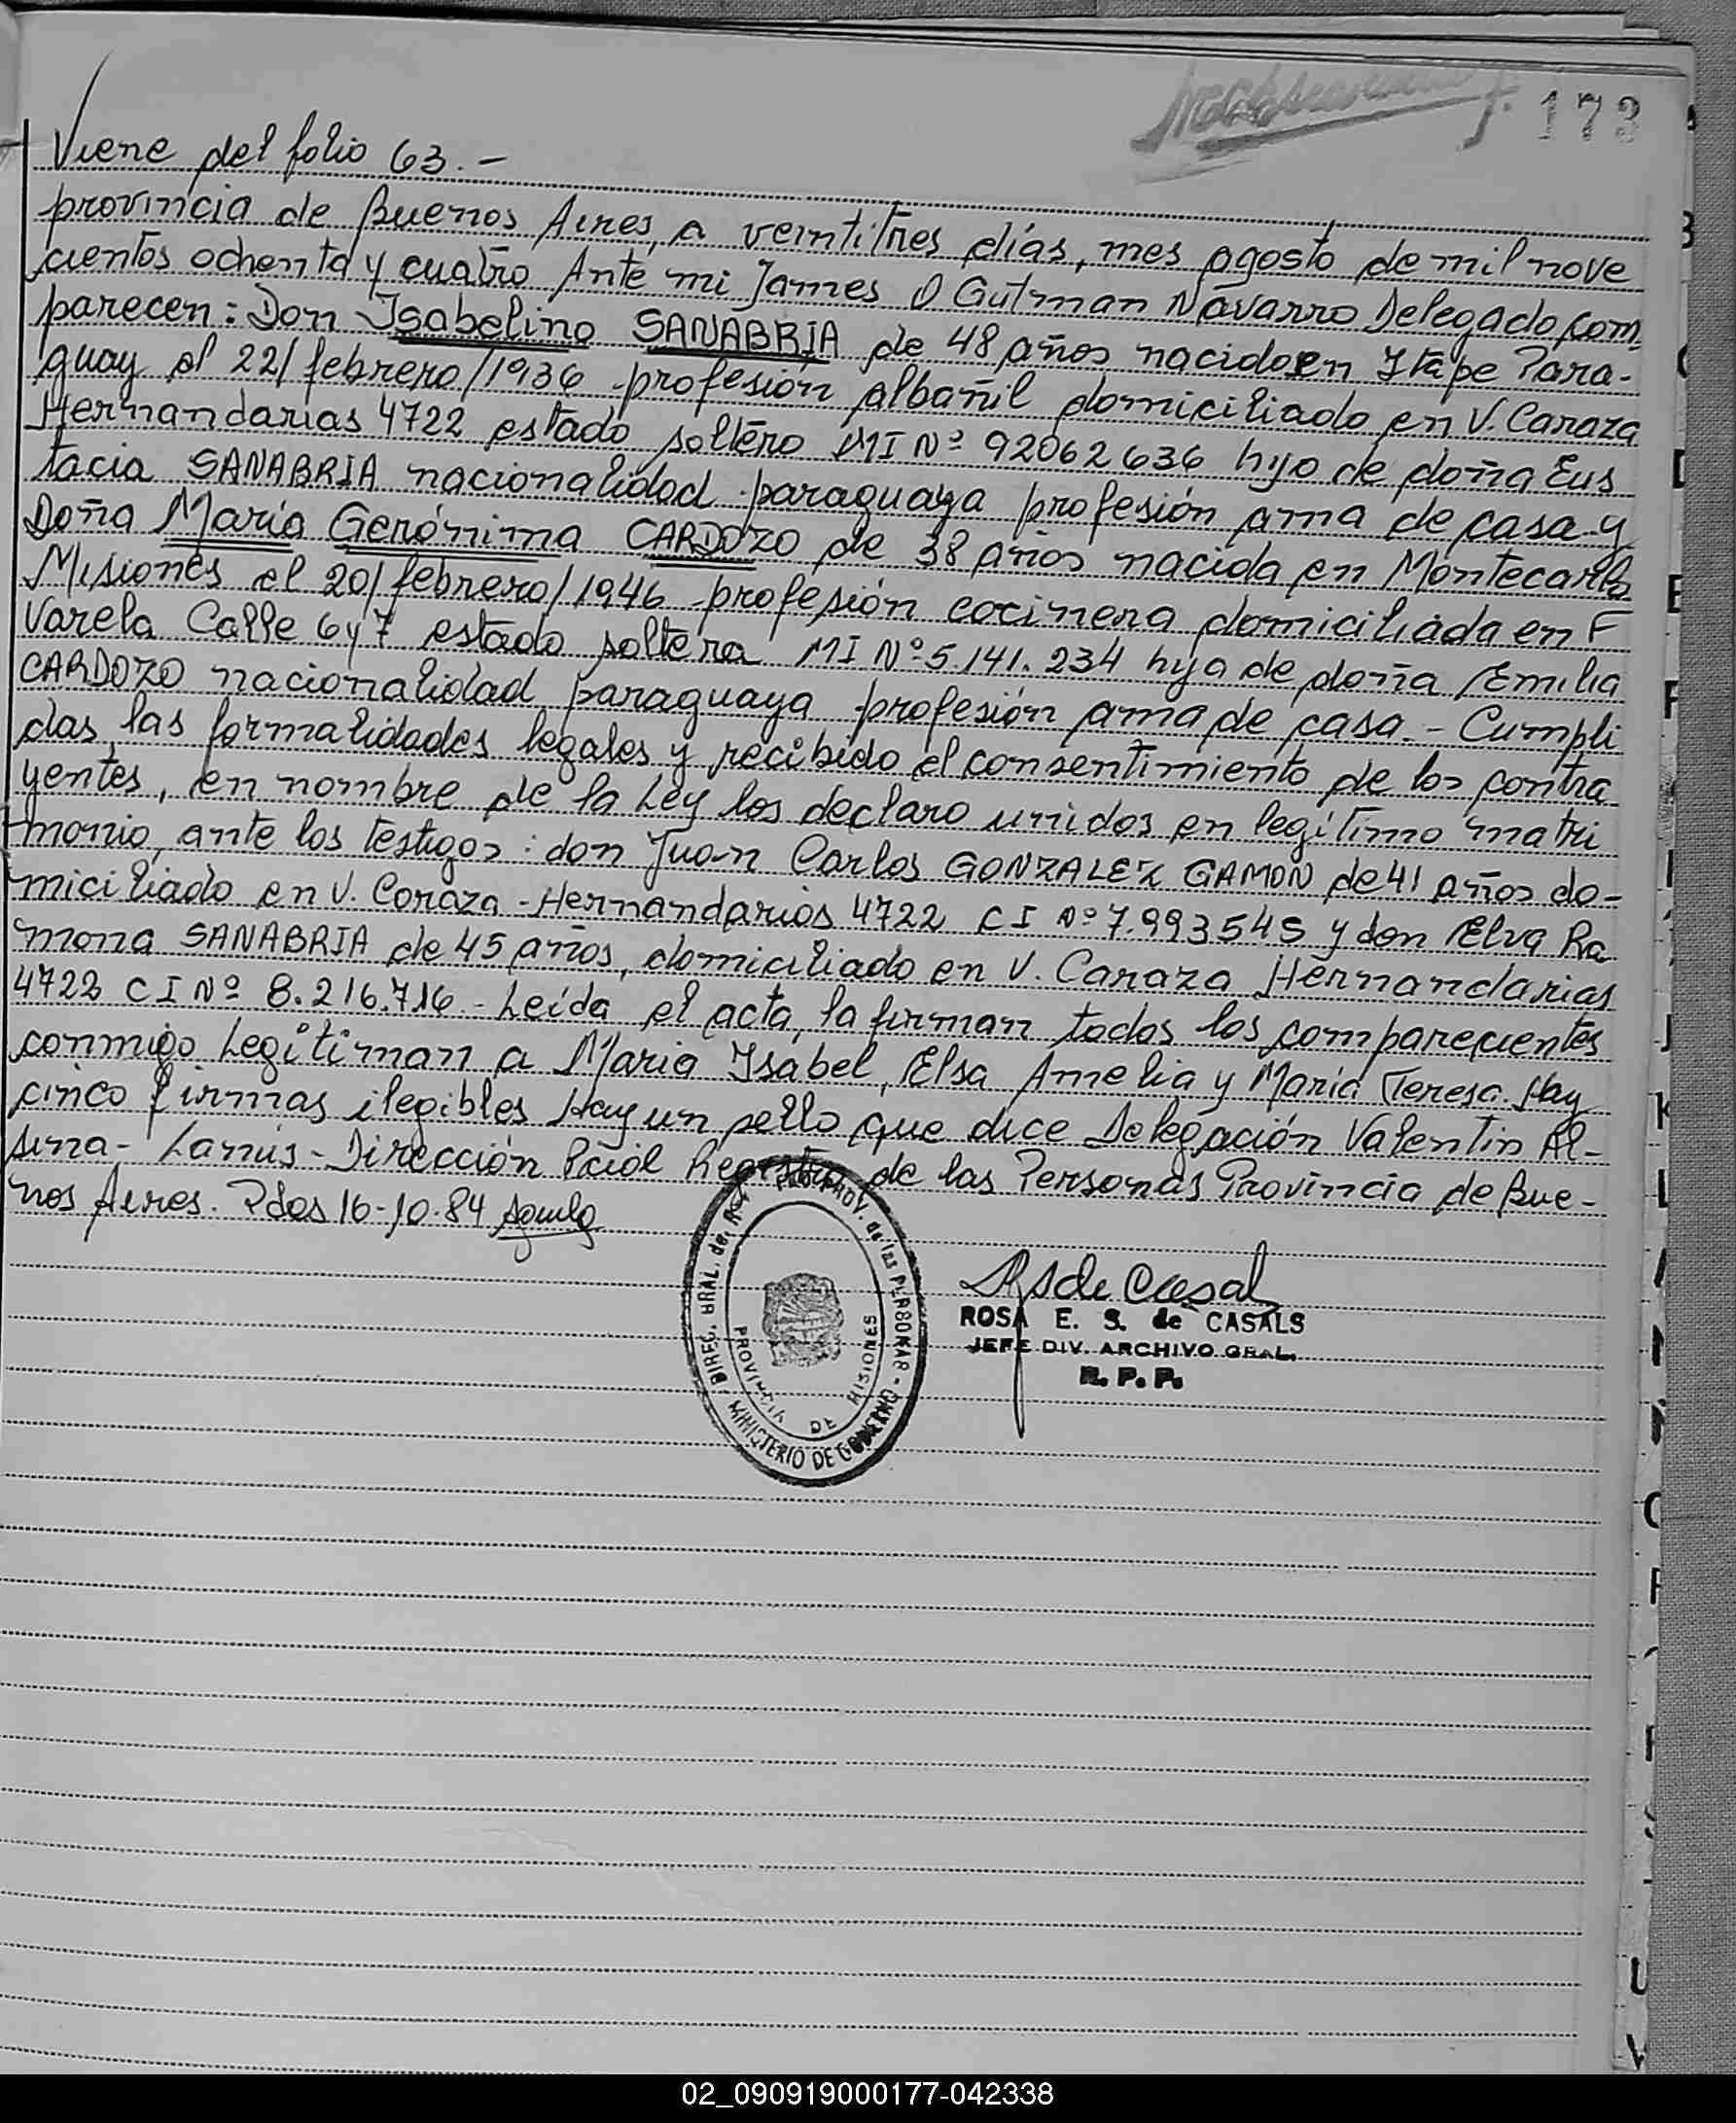 f. 173
Viene del folio 63.-
provincia de Buenos Aires, a veintitres días, mes agosto de mil nove
cientos ochenta y cuatro Ante mi James O Gutman Navarro Delegado com
parecen: Don Isabelino SANABRIA de 48 años nacido en Itape Para-
guay el 22/febrero/1936 profesión albañil domiciliado en V. Caraza
Hernandarias 4722 estado soltero MI Nº 92062636 hijo de doña Eus
tacia SANABRIA nacionalidad paraguaya profesión ama de casa y
Doña María Gerónima CARDOZO de 38 años nacida en Montecarlo
Misiones el 20/febrero/1946 profesión cocinera domiciliada en F
Varela Calle 6 y 7 estado soltera MI Nº 5.141.234 hija de doña Emilia
CARDOZO nacionalidad paraguaya profesión ama de casa.- Cumpli
das las formalidades legales y recibido el consentimiento de los contra
yentes, en nombre de la Ley los declaro unidos en legítimo matri
monio, ante los testigos: don Juan Carlos GONZALEZ GAMON de 41 años do-
miciliado en V. Coraza - Hernandarios 4722 CI Nº 7.993545 y don Elva Ra
mona SANABRIA de 45 años, domiciliado en V. Caraza Hernandarias
4722 CI Nº 8.216.716.- Leída el acta, la firman todos los comparecientes
conmigo Legitiman a Maria Isabel, Elsa Amelia y María Teresa. Hay
cinco firmas ilegibles Hay un sello que dice Delegación Valentin Al-
sina - Lanús - Dirección Pcial Registro de las Personas Provincia de Bue-
nos Aires. Pdas 16-10-84
DIREC. GRAL. del REG. PROV. de las PERSONAS - MINISTERIO DE GOBIERNO
PROVINCIA DE MISIONES
ROSA E. S. de CASALS
JEFE DIV. ARCHIVO GRAL.
R. P. P.
02_090919000177-042338